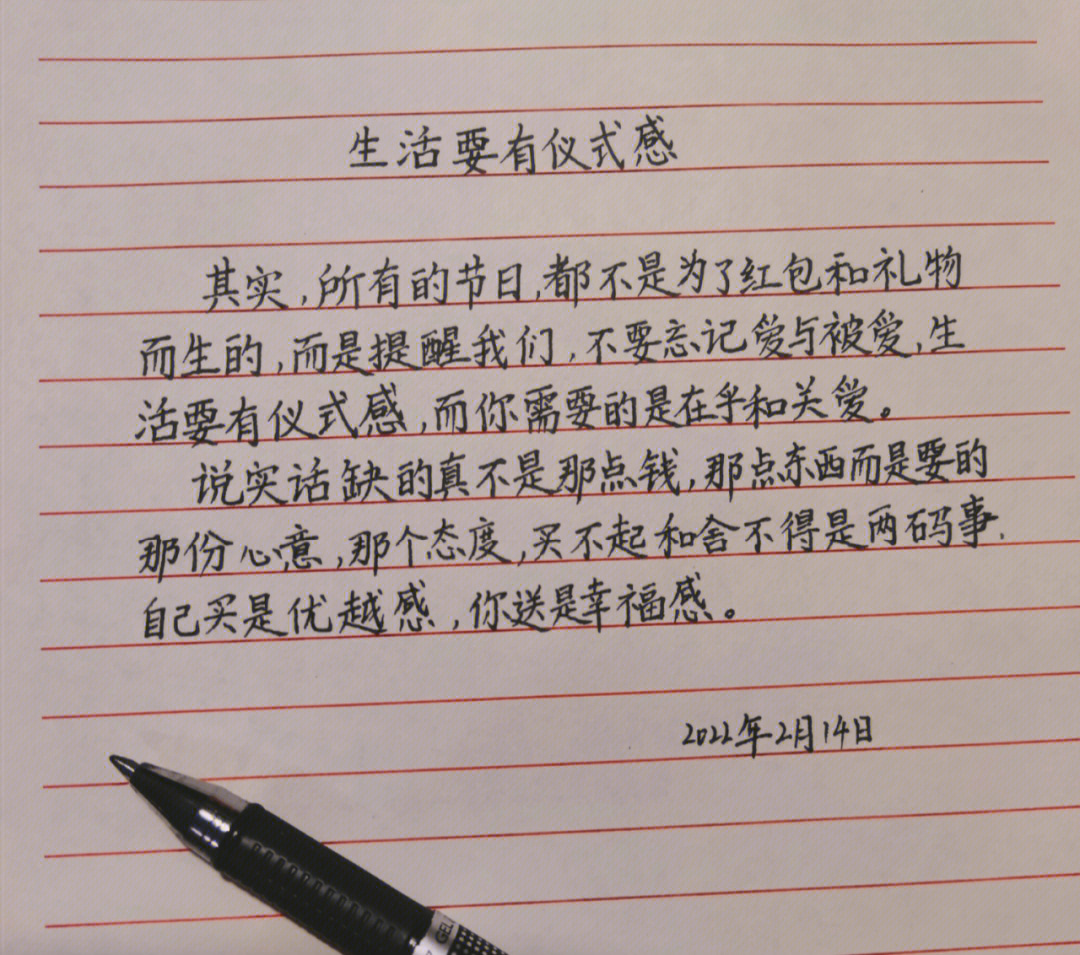 生活要有仪式感
其实,所有的节日,都不是为了红包和礼物
而生的,而是提醒我们,不要忘记爱与被爱,生
活要有仪式感,而你需要的是在乎和关爱。
说实话缺的真不是那点钱,那点东西而是要的
那份心意,那个态度,买不起和舍不得是两码事.
自己买是优越感,你送是幸福感。
2022年2月14日
GEL